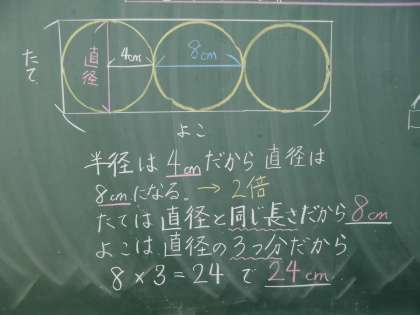 たて
直径
4cm
8cm
よこ
半径は4cmだから直径は
8cmになる。→2倍
たては直径と同じ長さだから8cm
よこは直径の3つ分だから
8×3=24で 24cm